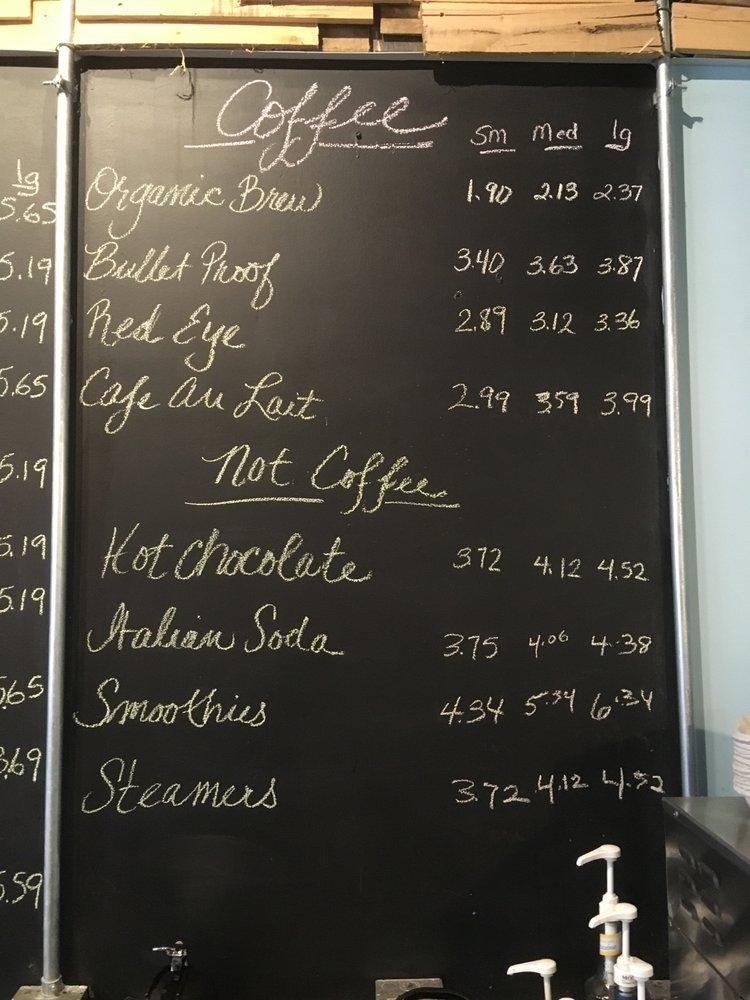 Coffee Sm Med lg
Organic Brew 1.90 2.13 2.37
Bullet Proof 3.40 3.63 3.87
Red Eye 2.89 3.12 3.36
Cafe Au Lait 2.99 359 3.99
Not Coffee
Hot Chocolate 372 4.12 4.52
Italian Soda 3.75 4.06 4.38
Smoothies 434 5.34 6.34
Steamers 3.72 4.12 4.52
lg
5.65
5.19
5.19
5.65
5.19
5.19
5.19
.65
.69
5.59